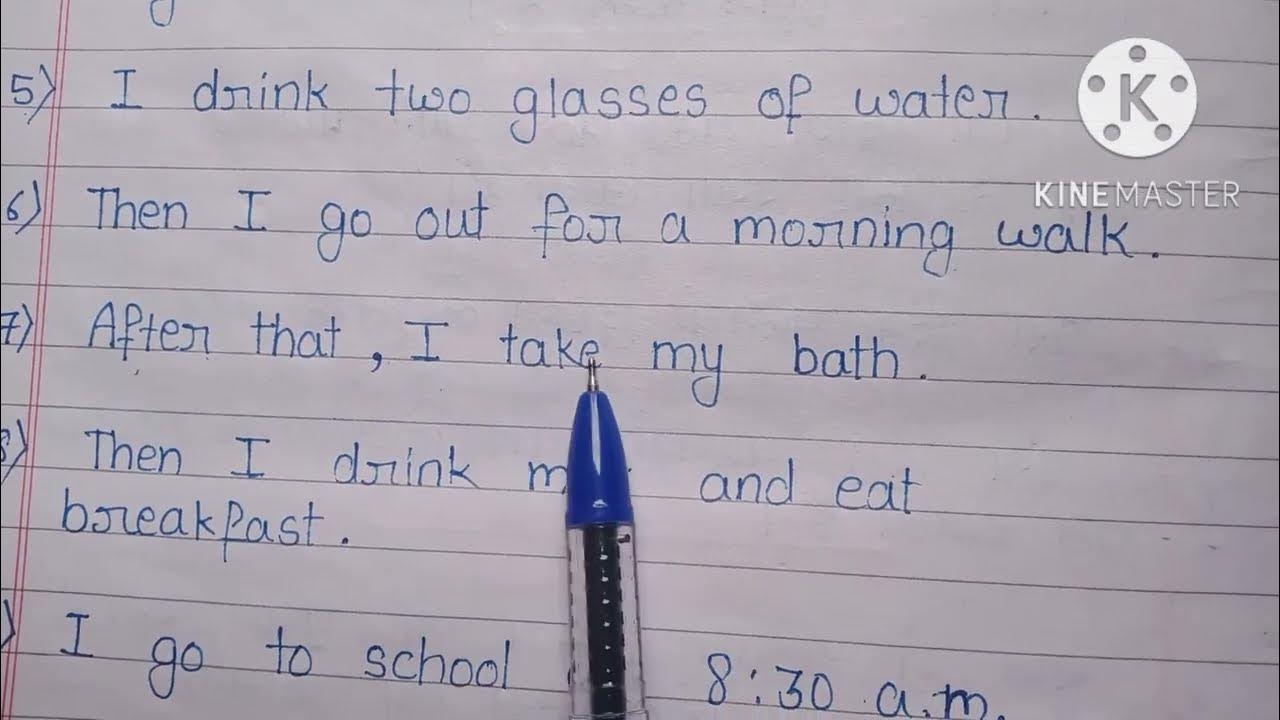 5) I drink two glasses of water.
KINEMASTER
6) Then I go out for a morning walk.
7) After that, I take my bath.
8) Then I drink and eat
breakfast.
) I go to school 8:30 a.m.